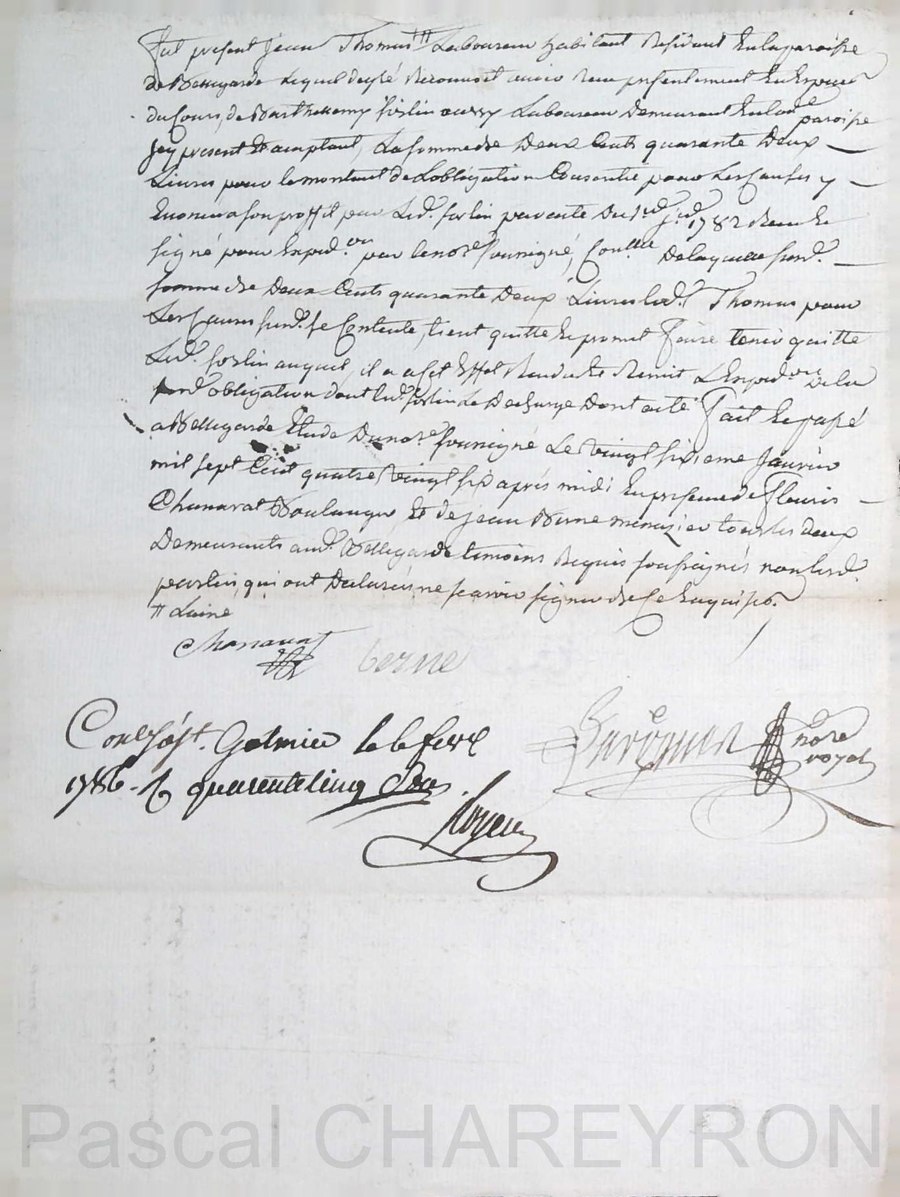 Fut présent Jean Thomas // Laboureur habitant Résident En la paroisse
de Bellegarde Lequel de gré Reconnoit avoir Reçu présentement En Espèces
du Cours, de Barthelemy forlin aussy Laboureur Demeurant En lad.e paroisse
Jcy présent Et acceptant, La somme de Deux Cents quarante Deux
Livres pour le montant de Lobligation Consentie pour Les Causes y
Enoncés a son proffit par Led.t forlin pardevant 1782
signé pour Exped.on par le no.re soussigné, Con.llé De laquelle susd.e
somme de Deux Cents quarante Deux Livres led.t Thomas pour
Les Causes susd.es se Contente, tient quitte Et promet faire tenir quitte
Led.t forlin auquel il a a cet Effet Rendu Et Remit L'Exped.on De la
susd.e obligation dont led.t forlin Le Decharge Dont acte Fait Et passé
a Bellegarde Etude Du no.re soussigné Le vingt sixieme Janvier
mil sept Cent quatre vingt six après midi En présence de Fleuris
Chanavat Boulanger Et de Jean Berne menuzier tous les deux
Demeurants aud.t Bellegarde temoins Requis soussignés non lesd.
parties, qui ont Déclarés ne sçavoir signer de ce Enquises.
// Laine
Chanavat
berne
no.re
royal
Con.lé à st. Galmier le 6 fevr.
1786. R quarente cinq s.